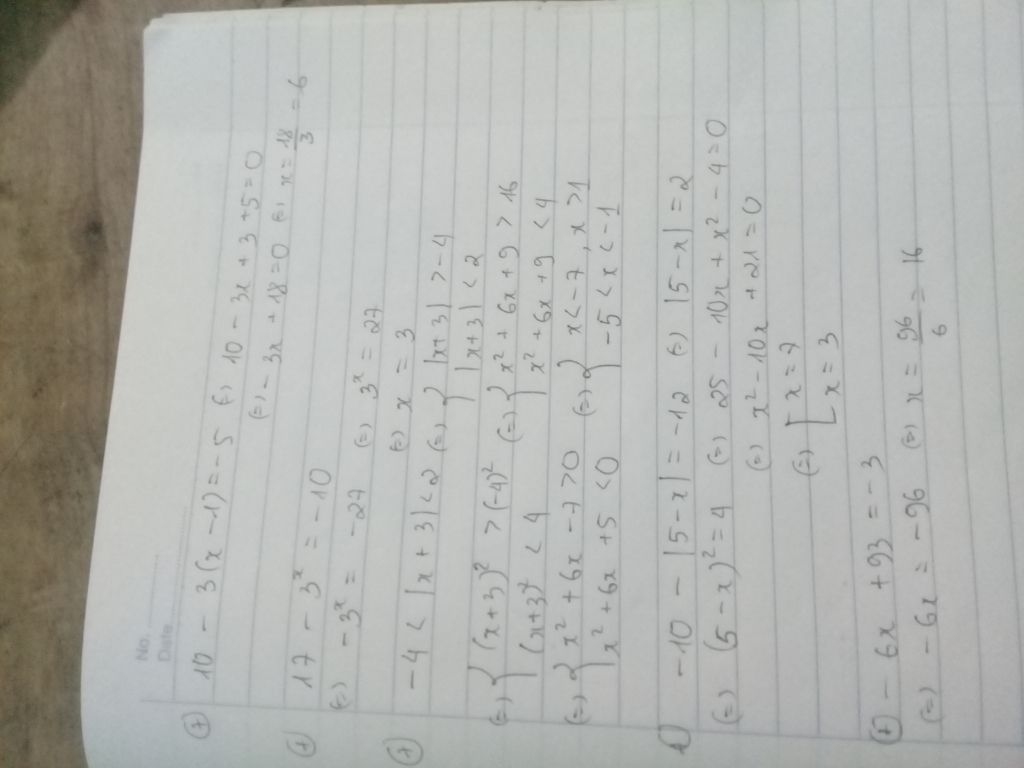 No.
Date
(+) 10 - 3(x - 1) = -5 (=) 10 - 3x + 3 + 5 = 0
(=) - 3x + 18 = 0 (=) x = 18/3 = 6
(+) 17 - 3^x = -10
(=) -3^x = -27 (=) 3^x = 27
(=) x = 3
(+) -4 < |x + 3| < 2 (=) { |x+3| > -4
|x+3| < 2
(=) { (x+3)² > (-4)² (=) { x² + 6x + 9 > 16
(x+3)² < 4 x² + 6x + 9 < 4
(=) { x² + 6x - 7 > 0 (=) { x < -7, x > 1
x² + 6x + 5 < 0 -5 < x < -1
-10 - |5 - x| = -12 (=) |5 - x| = 2
(=) (5 - x)² = 4 (=) 25 - 10x + x² - 4 = 0
(=) x² - 10x + 21 = 0
(=) [ x = 7
x = 3
(+) - 6x + 93 = -3
(=) - 6x = -96 (=) x = 96/6 = 16